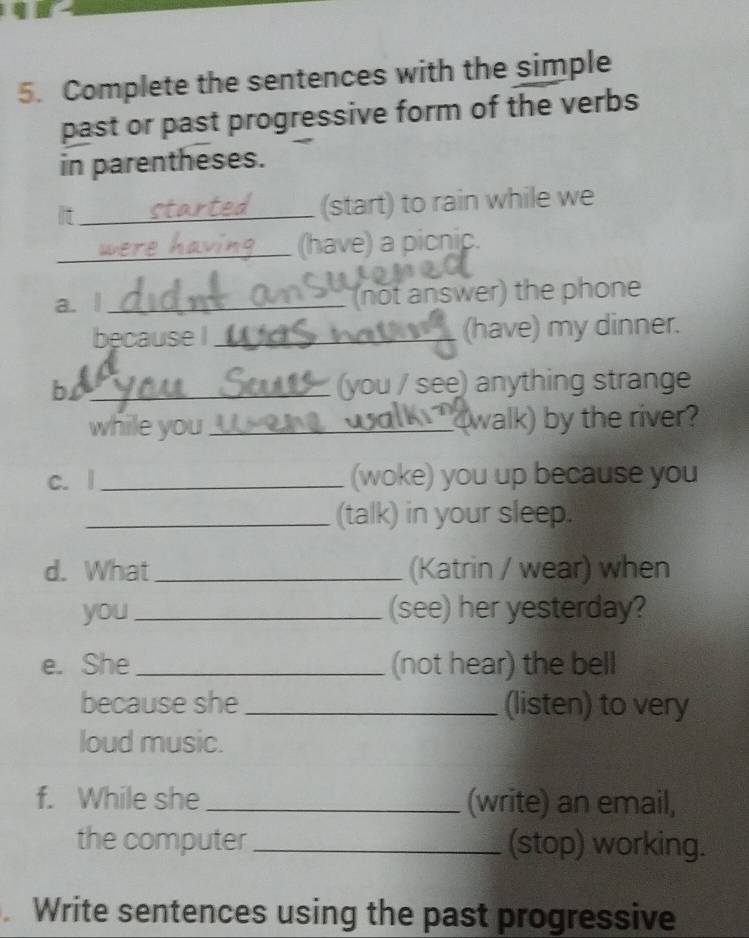 5. Complete the sentences with the simple
past or past progressive form of the verbs
in parentheses.
It started (start) to rain while we
were having (have) a picnic.
a. I didnt answered (not answer) the phone
because I was having (have) my dinner.
b. did you saw (you / see) anything strange
while you were walking (walk) by the river?
c. I ______ (woke) you up because you
______ (talk) in your sleep.
d. What ______ (Katrin / wear) when
you ______ (see) her yesterday?
e. She ______ (not hear) the bell
because she ______ (listen) to very
loud music.
f. While she ______ (write) an email,
the computer ______ (stop) working.
. Write sentences using the past progressive